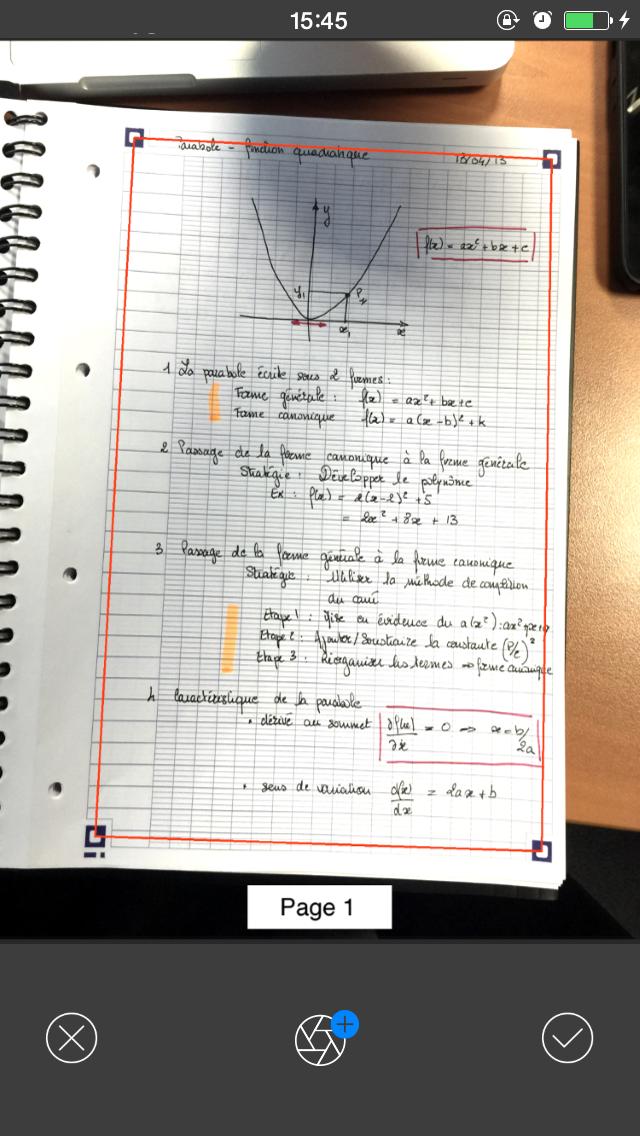 15:45
Parabole - fonction quadratique
18/04/13
y
f(x) = ax² + bx + c
y₁
P
x₁
x
1 La parabole écrite sous 2 formes :
Forme générale : f(x) = ax² + bx + c
Forme canonique f(x) = a(x - b)² + k
2 Passage de la forme canonique à la forme générale
Stratégie : Développer le polynôme
Ex : f(x) = 2(x-2)² + 5
= 2x² + 8x + 13
3 Passage de la forme générale à la forme canonique
Stratégie : Utiliser la méthode de complétion
du carré
Etape 1 : Mise en évidence du a(x²) : ax²
Etape 2 : Ajouter/Soustraire la constante (P/2)²
Etape 3 : Réorganiser les termes ⇒ forme canonique
4 Caractéristique de la parabole
• dérivé au sommet ∂f(x)/∂x = 0 ⇒ x = -b/2a
• sens de variation df(x)/dx = 2ax + b
Page 1